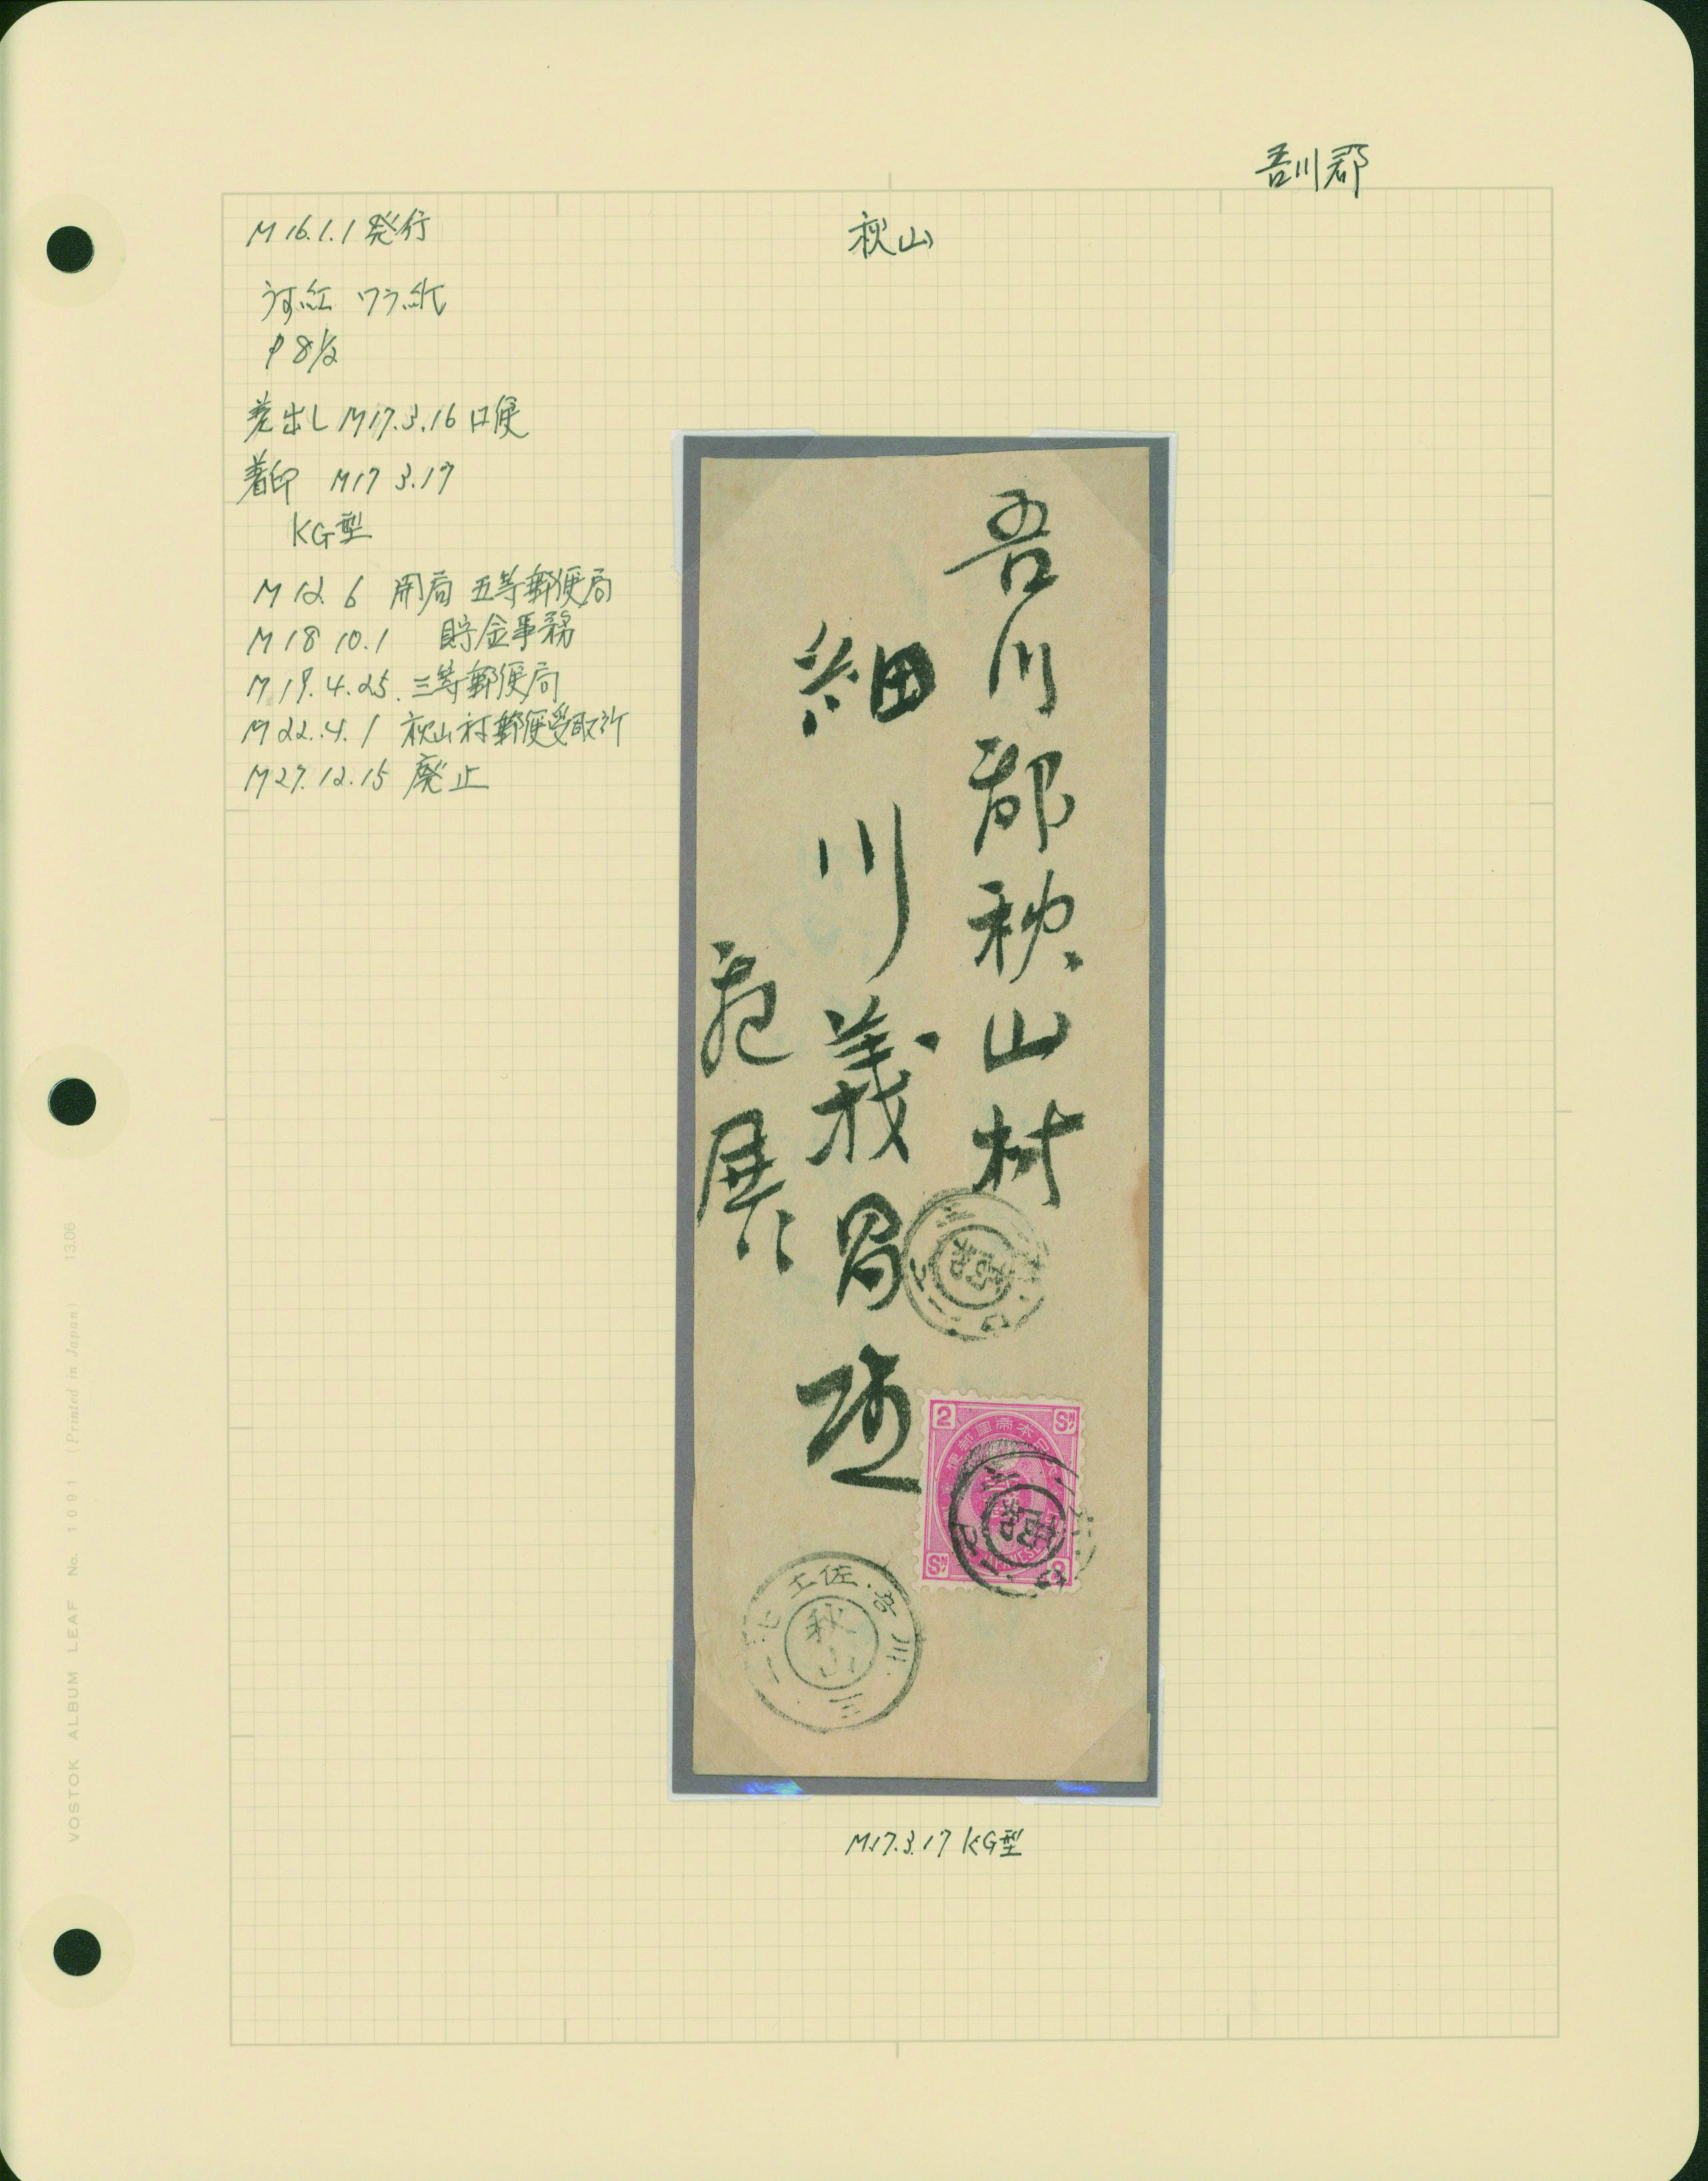 吾川郡
秋山
M16.1.1発行
うす紅 ワラ紙
P 8½
差出し M17.3.16 口便
着印 M17 3.17
KG型
M12 6 開局 五等郵便局
M18 10.1 貯金事務
M19.4.25. 三等郵便局
M22.4.1 秋山村郵便受取所
M27.12.15 廃止
吾川郡秋山村
細川義昌
展
2 SN
SN 2
土佐.吾川.
秋山
M17.3.17 KG型
VOSTOK ALBUM LEAF No. 1091 (Printed in Japan) 13.06